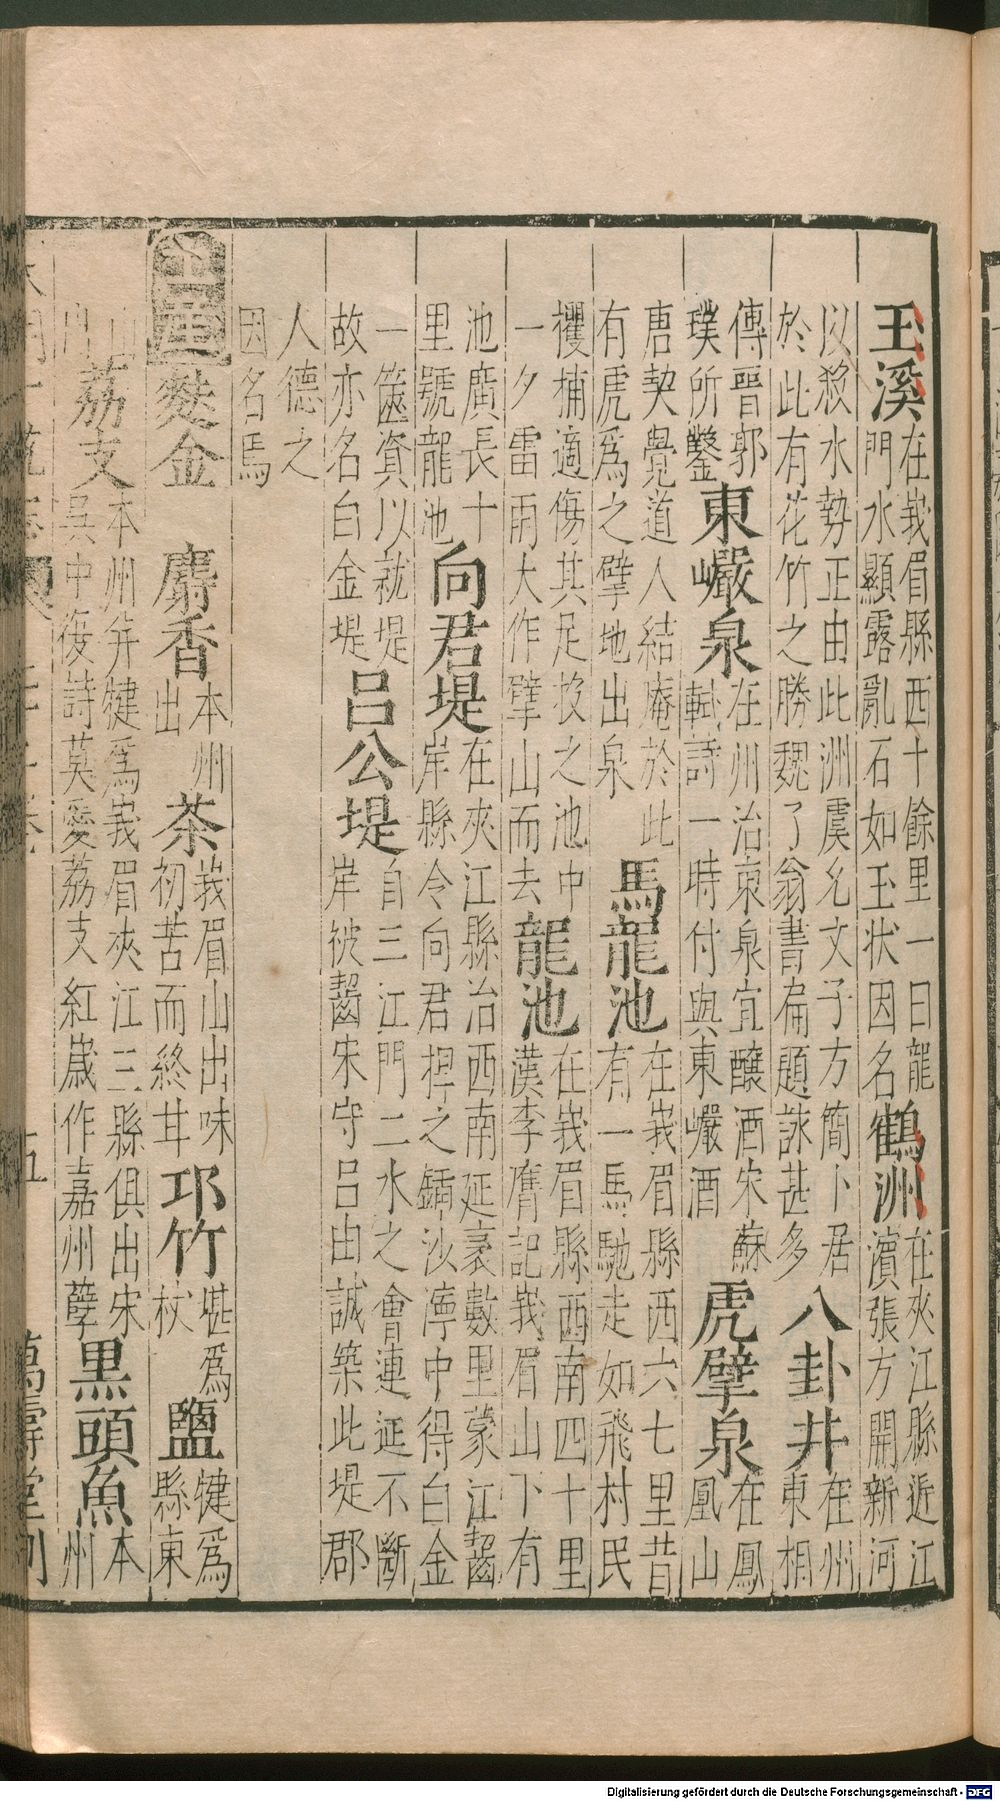 玉溪在峩眉縣西十餘里一曰龍門水顯露亂石如玉状因名鶴洲在夾江縣近江濵張方開新河
以殺水勢正由此洲虞允文子方簡卜居於此有花竹之勝魏了翁書扁題詠甚多八卦井在州東相
傳晉郭璞所鑿東巗泉在州治東泉宜釀酒宋蘇軾詩一時付與東巗酒虎擘泉在鳳凰山
唐契覺道人結庵於此有虎爲之擘地出泉馬龍池在峩眉縣西六七里昔有一馬馳走如飛村民
攫捕適傷其足投之池中一夕雷雨大作擘山而去龍池在峩眉縣西南四十里漢李膺記峩眉山下有
池廣長十里號龍池向君堤在夾江縣治西南延袤數里蒙江齧岸縣令向君捍之鍤沙濘中得白金
一篋資以就堤故亦名白金堤呂公堤自三江門二水之會連延不斷岸彼齧宋守呂由誠築此堤郡
人德之因名焉
土産麩金 麝香本州出茶峩眉山出味初苦而終甘邛竹堪爲杖鹽犍爲縣東
山荔支本州并犍爲峩眉夾江三縣俱出宋吳中復詩莫愛荔支紅歲作嘉州孽黒頭魚本州
大明一統志 五 萬壽堂刊
Digitalisierung gefördert durch die Deutsche Forschungsgemeinschaft - DFG